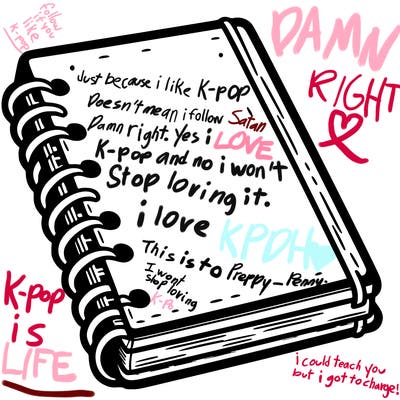 follow
if you
like
K-pop
DAMN
RIGHT
Just because i like K-POP
Doesn't mean i follow Satan
Damn right. Yes i LOVE
K-pop and no i won't
Stop loving it.
i love KPDH
This is to Preppy_Penny.
I wont
stop loving
K-Po
K-pop
is
LIFE
i could teach you
but i got to charge!